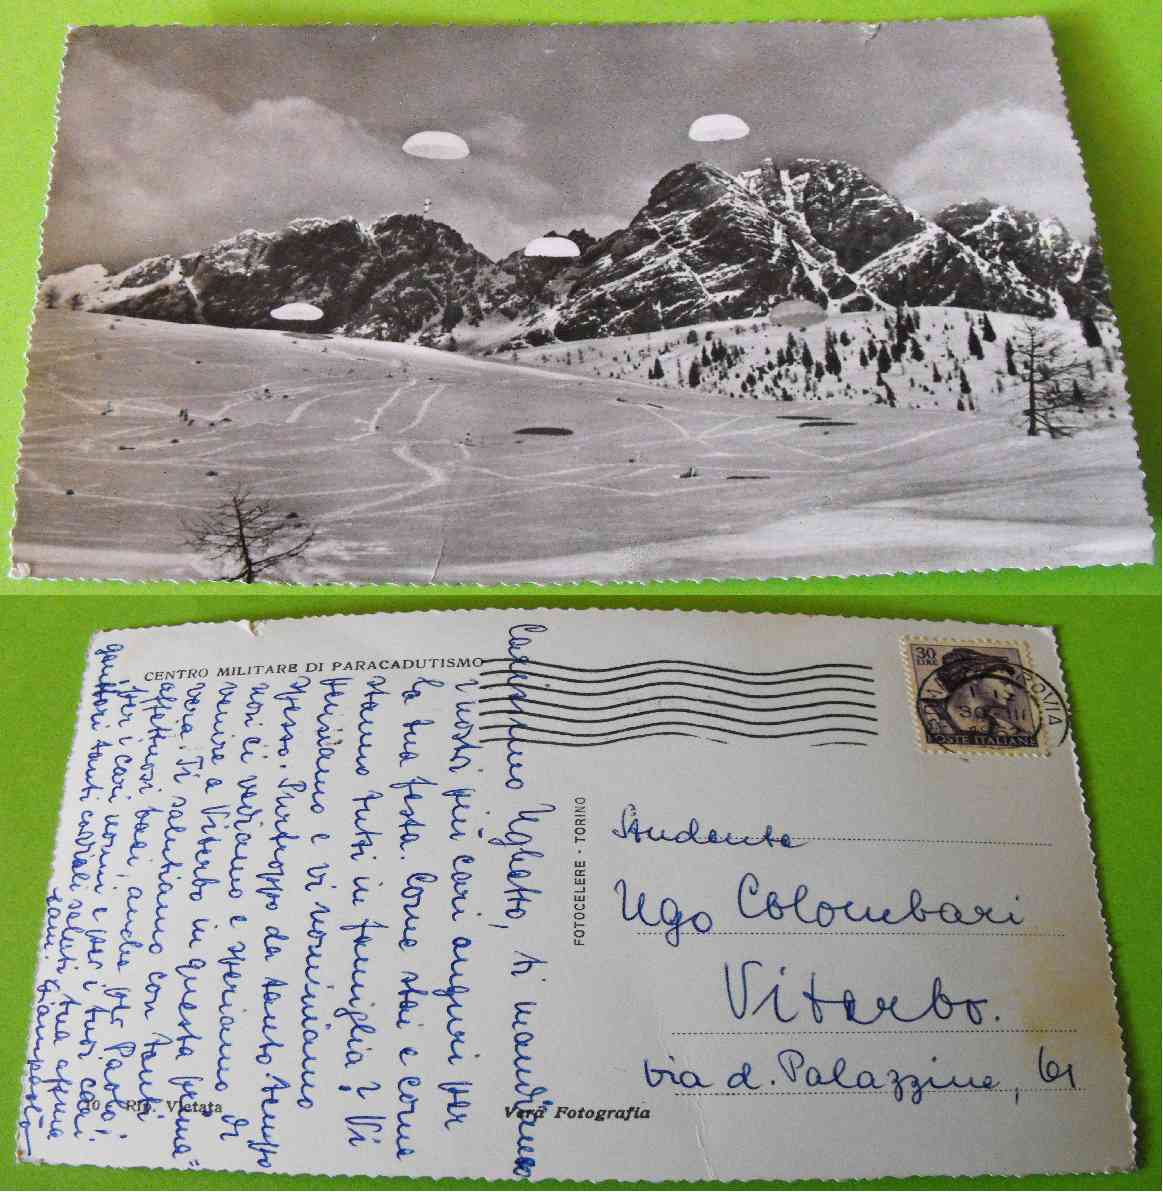 CENTRO MILITARE DI PARACADUTISMO
Carissimo Ughetto, ti mandiamo
i nostri più cari auguri per
la tua festa. Come stai e come
stanno tutti in famiglia? Vi
pensiamo e vi nominiamo
spesso. Purtroppo da tanto tempo
non ci vediamo e speriamo di
venire a Viterbo in questa prima=
vera. Ti salutiamo con tanti
affettuosi baci, anche per Paolo.
Per i cari nonni e per i tuoi cari
genitori tanti cordiali saluti, tua
30 LIRE
POSTE ITALIANE
FOTOCELERE - TORINO
Studente
Ugo Colombari
Viterbo.
via d. Palazzine, 61
Rip. Vietata
Vera Fotografia